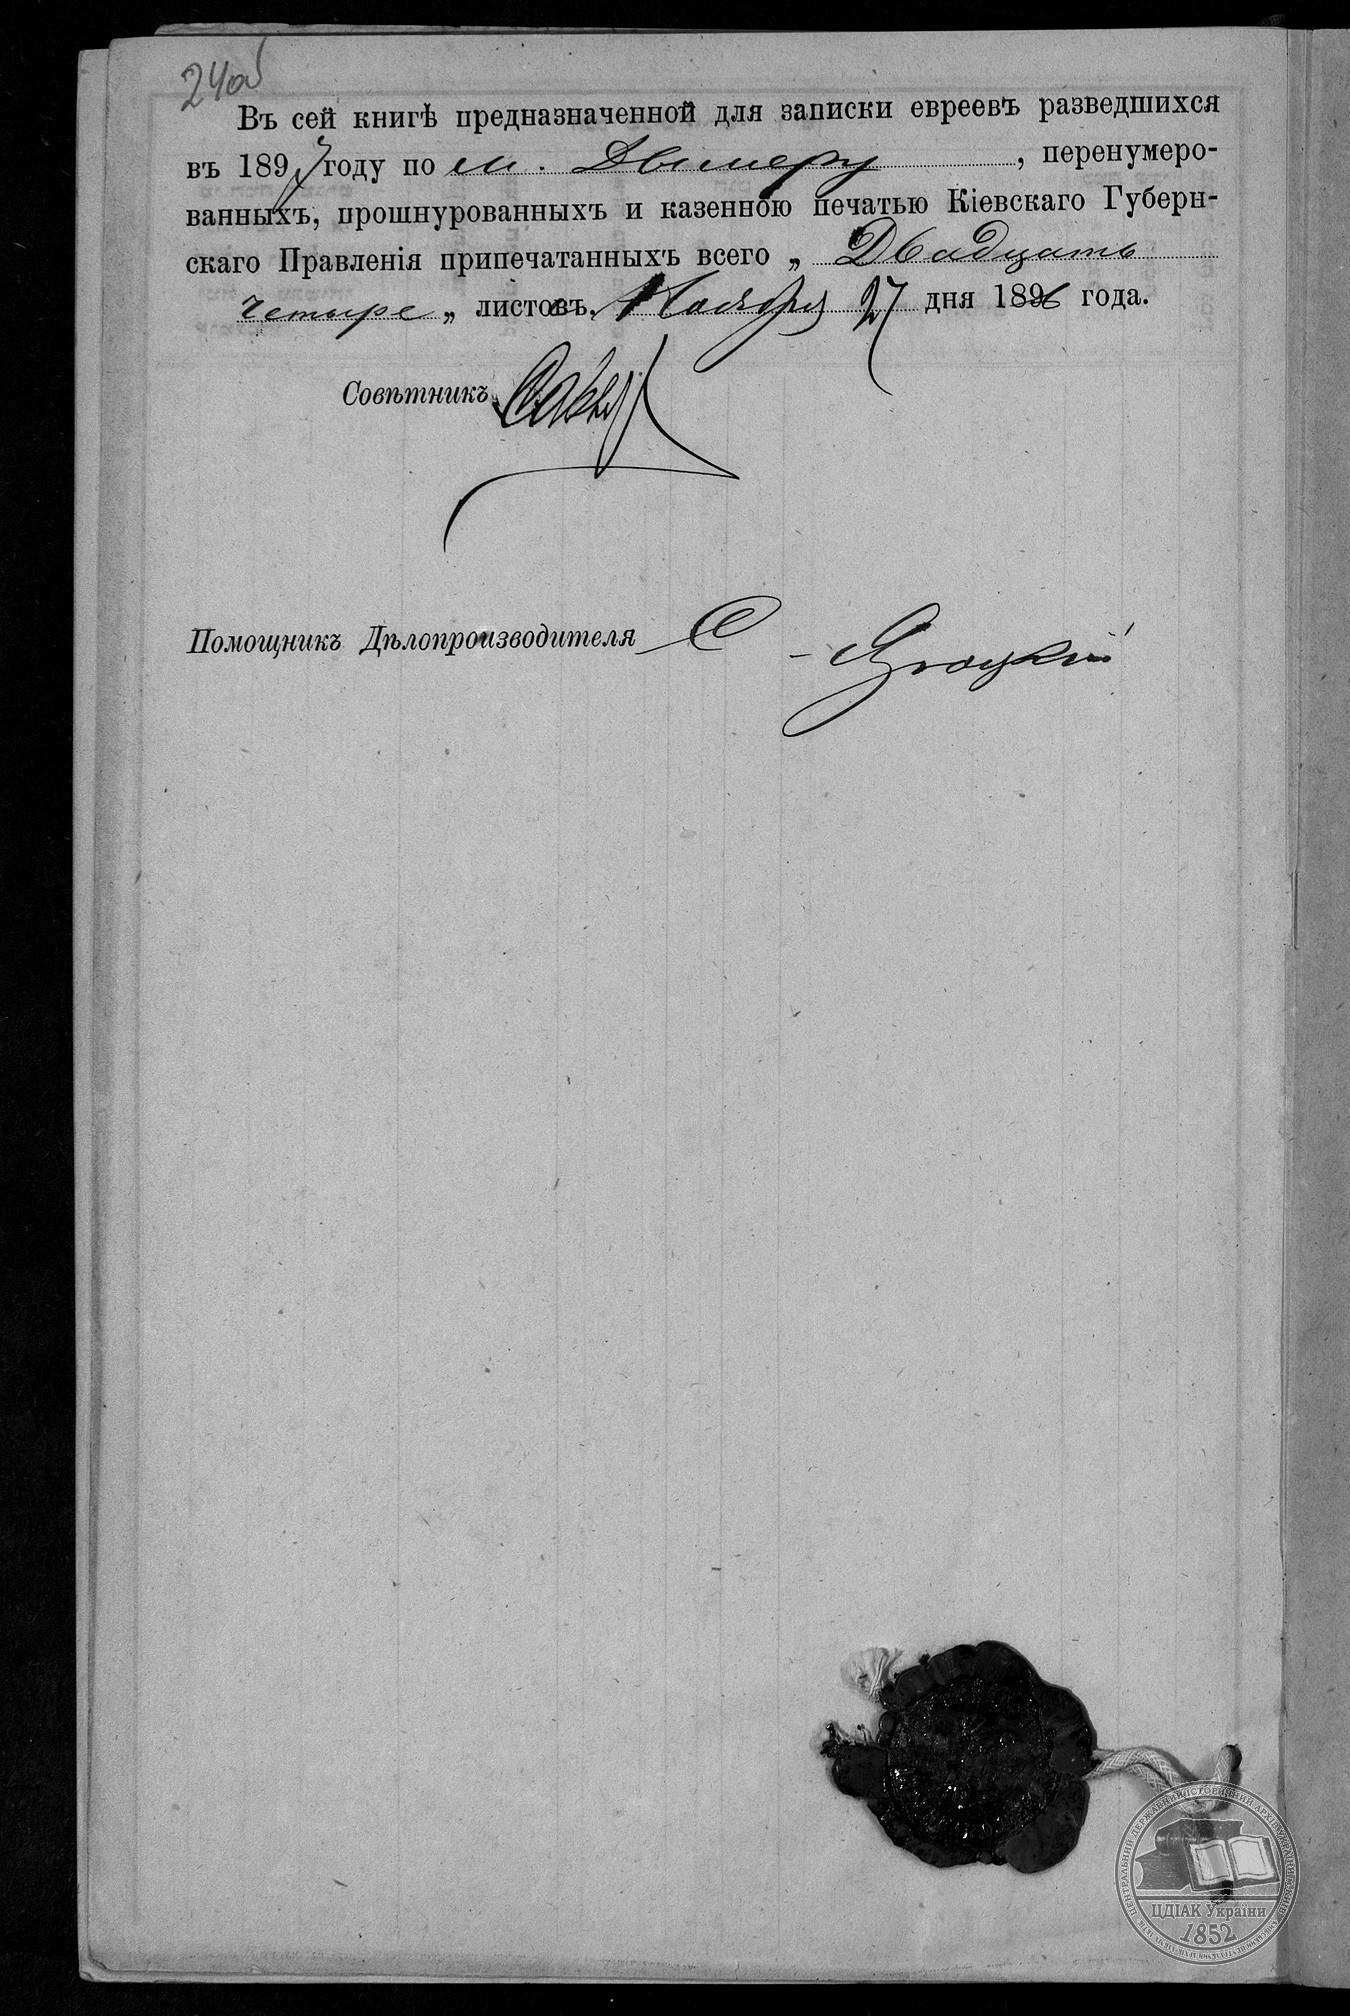 24об
Въ сей книгѣ предназначенной для записки евреевъ разведшихся
въ 1897 году по м. Дымеру, перенумеро-
ванныхъ, прошнурованныхъ и казенною печатью Кіевскаго Губерн-
скаго Правленія припечатанныхъ всего „ Двадцать
четыре „ листовъ. Ноября 27 дня 1896 года.
Совѣтникъ
Помощникъ Дѣлопроизводителя С. Яроцкій
ЦЕНТРАЛЬНИЙ ДЕРЖАВНИЙ ІСТОРИЧНИЙ АРХІВ УКРАЇНИ
ЦДІАК України
1852